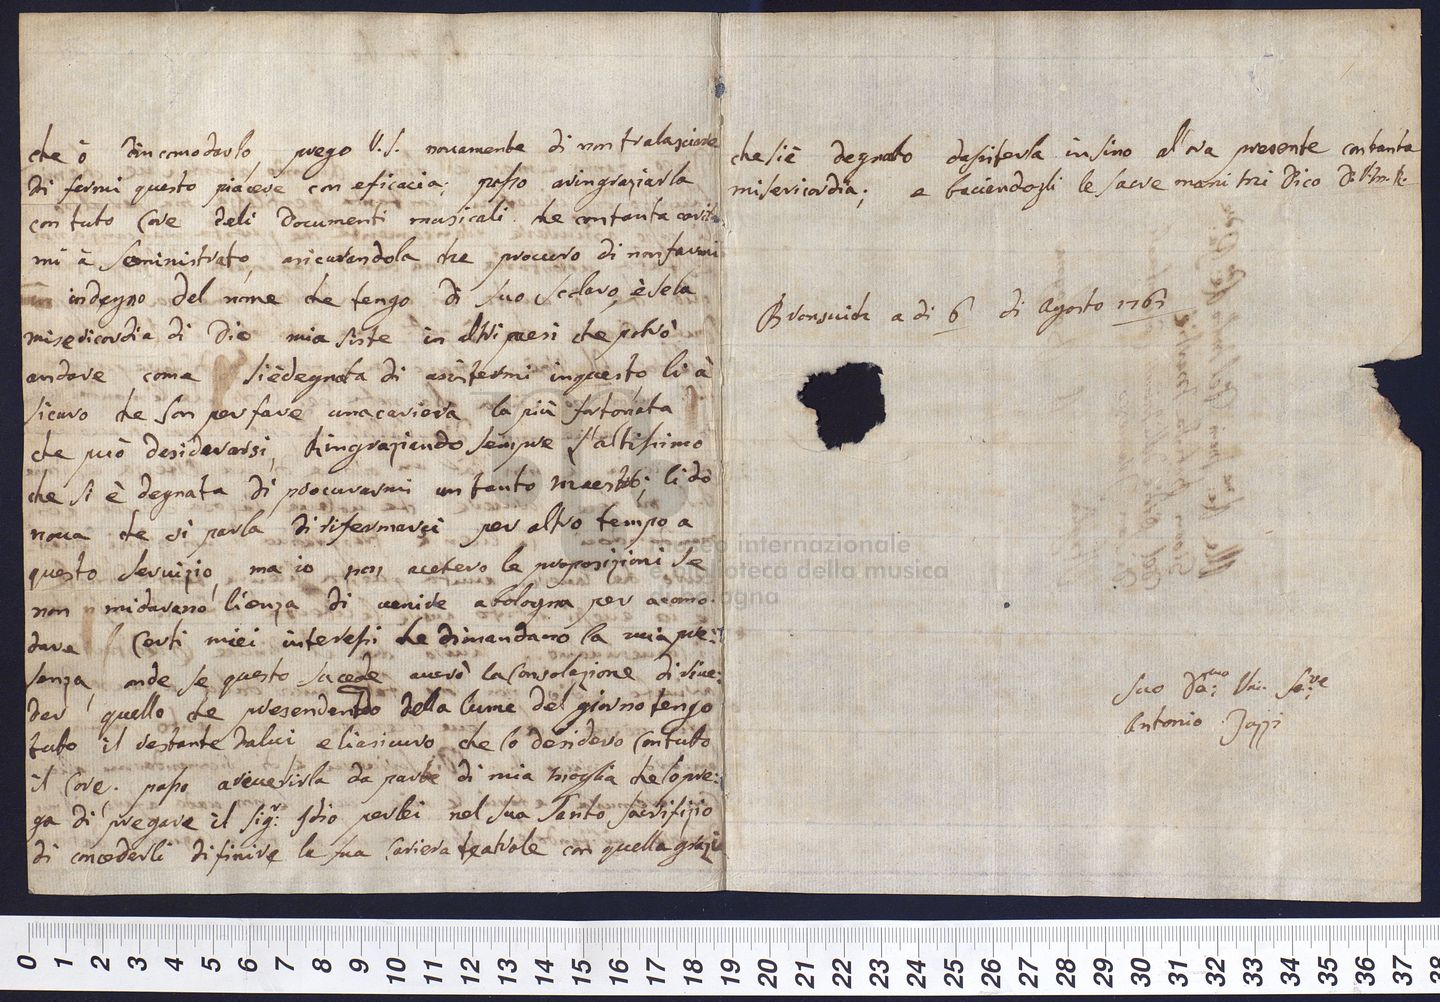 che ò d'incomodarlo, prego V.S. novamente di non tralasciare
di farmi questo piacere con eficacia; passo aringraziarla
con tuto Core deli Documenti musicali che contanta carità
mi à Seministrato, asicurandola che procuro di non farmi
indegno del nome che tengo di suo Scolaro, è se la
misedicordia di Dio mi asiste in altri paesi che potrò
andare, come si è degnata di asistermi in questo, li à
sicuro che son per fare una cariera la più fortonata
che può desiderarsi, Ringraziando sempre l'altissimo
che si è degnata di procurarmi un tanto maestro; li dò
nova che si parla di rifermarsi per altro tempo a
questo servizio, ma io non acetero le proposizioni se
non mi darano licenza di venire a bologna per acomo-
dare Certi miei interessi che dimandano la mia pre:
senza, onde se questo sucede averò la Consolazione di rive:
der quello che presendendo della lume del giorno tengo
tutto il restante da lui e li asicuro che lo desidero con tutto
il Core. passo a reverirla da parte di mia moglia che lo pre:
ga di pregare il Sigr: Idio per lei nel suo Santo Sacrifizio
di concederli di finire la sua Cariera teatrale con quella grazi
che si è degnato dasisterla in sino al ora presente con tanta
misericordia; e baciendogli le sacre mani mi Dico D. V. S. M. R.
Bransuich a di 6 di Agosto 1761
Suo Dẽ:mo Um. Se:re
Antonio Jozzi
museo internazionale
e biblioteca della musica
di bologna
0 1 2 3 4 5 6 7 8 9 10 11 12 13 14 15 16 17 18 19 20 21 22 23 24 25 26 27 28 29 30 31 32 33 34 35 36 37 38